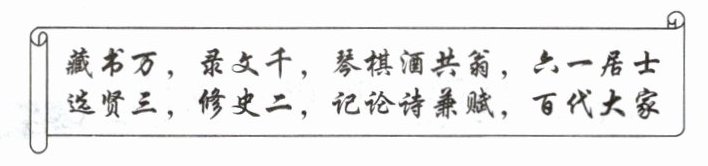 藏书万，录文千，琴棋酒共翁，六一居士
选贤三，修史二，记论诗兼赋，百代大家